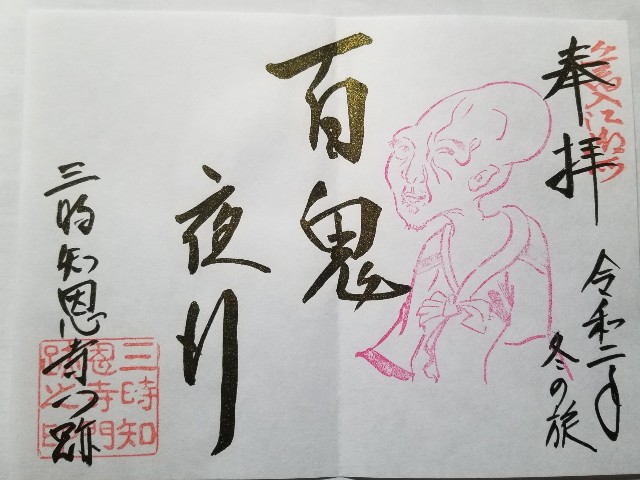 奉拝
令和二年
冬の旅
百鬼
夜行
三時知恩寺門跡
三時知
恩寺門
跡之印